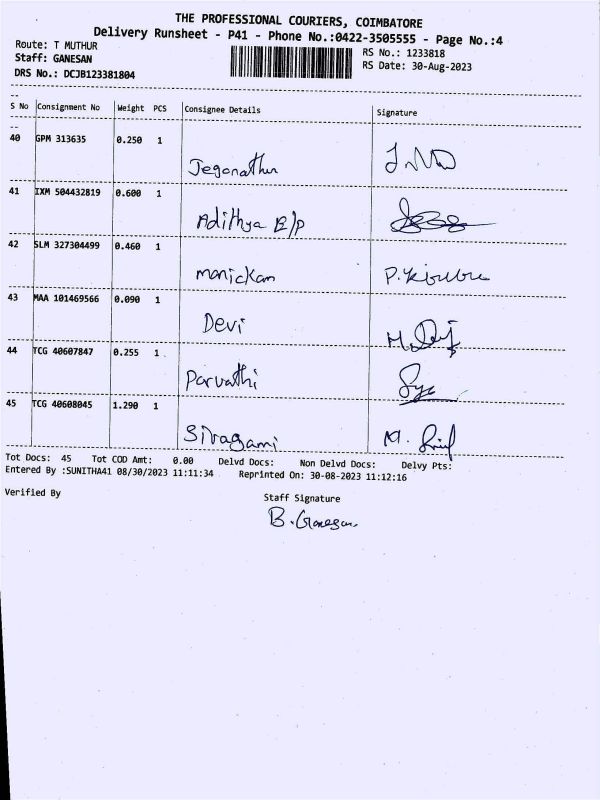 THE PROFESSIONAL COURIERS, COIMBATORE
Delivery Runsheet - P41 - Phone No.:0422-3505555 - Page No.:4
Route: T MUTHUR
Staff: GANESAN
DRS No.: DCJB123381804
RS No.: 1233818
RS Date: 30-Aug-2023
S No Consignment No Weight PCS Consignee Details Signature
40 GPM 313635 0.250 1
Jegonathan
41 IXM 504432819 0.600 1
Adithya E/P
42 SLM 327304499 0.460 1
manickam
43 MAA 101469566 0.090 1
Devi
44 TCG 40607847 0.255 1
Parvathi
45 TCG 40608045 1.290 1
Sivagami
Tot Docs: 45 Tot COD Amt: 0.00 Delvd Docs: Non Delvd Docs: Delvy Pts:
Entered By :SUNITHA41 08/30/2023 11:11:34 Reprinted On: 30-08-2023 11:12:16
Verified By Staff Signature
B. Ganesan